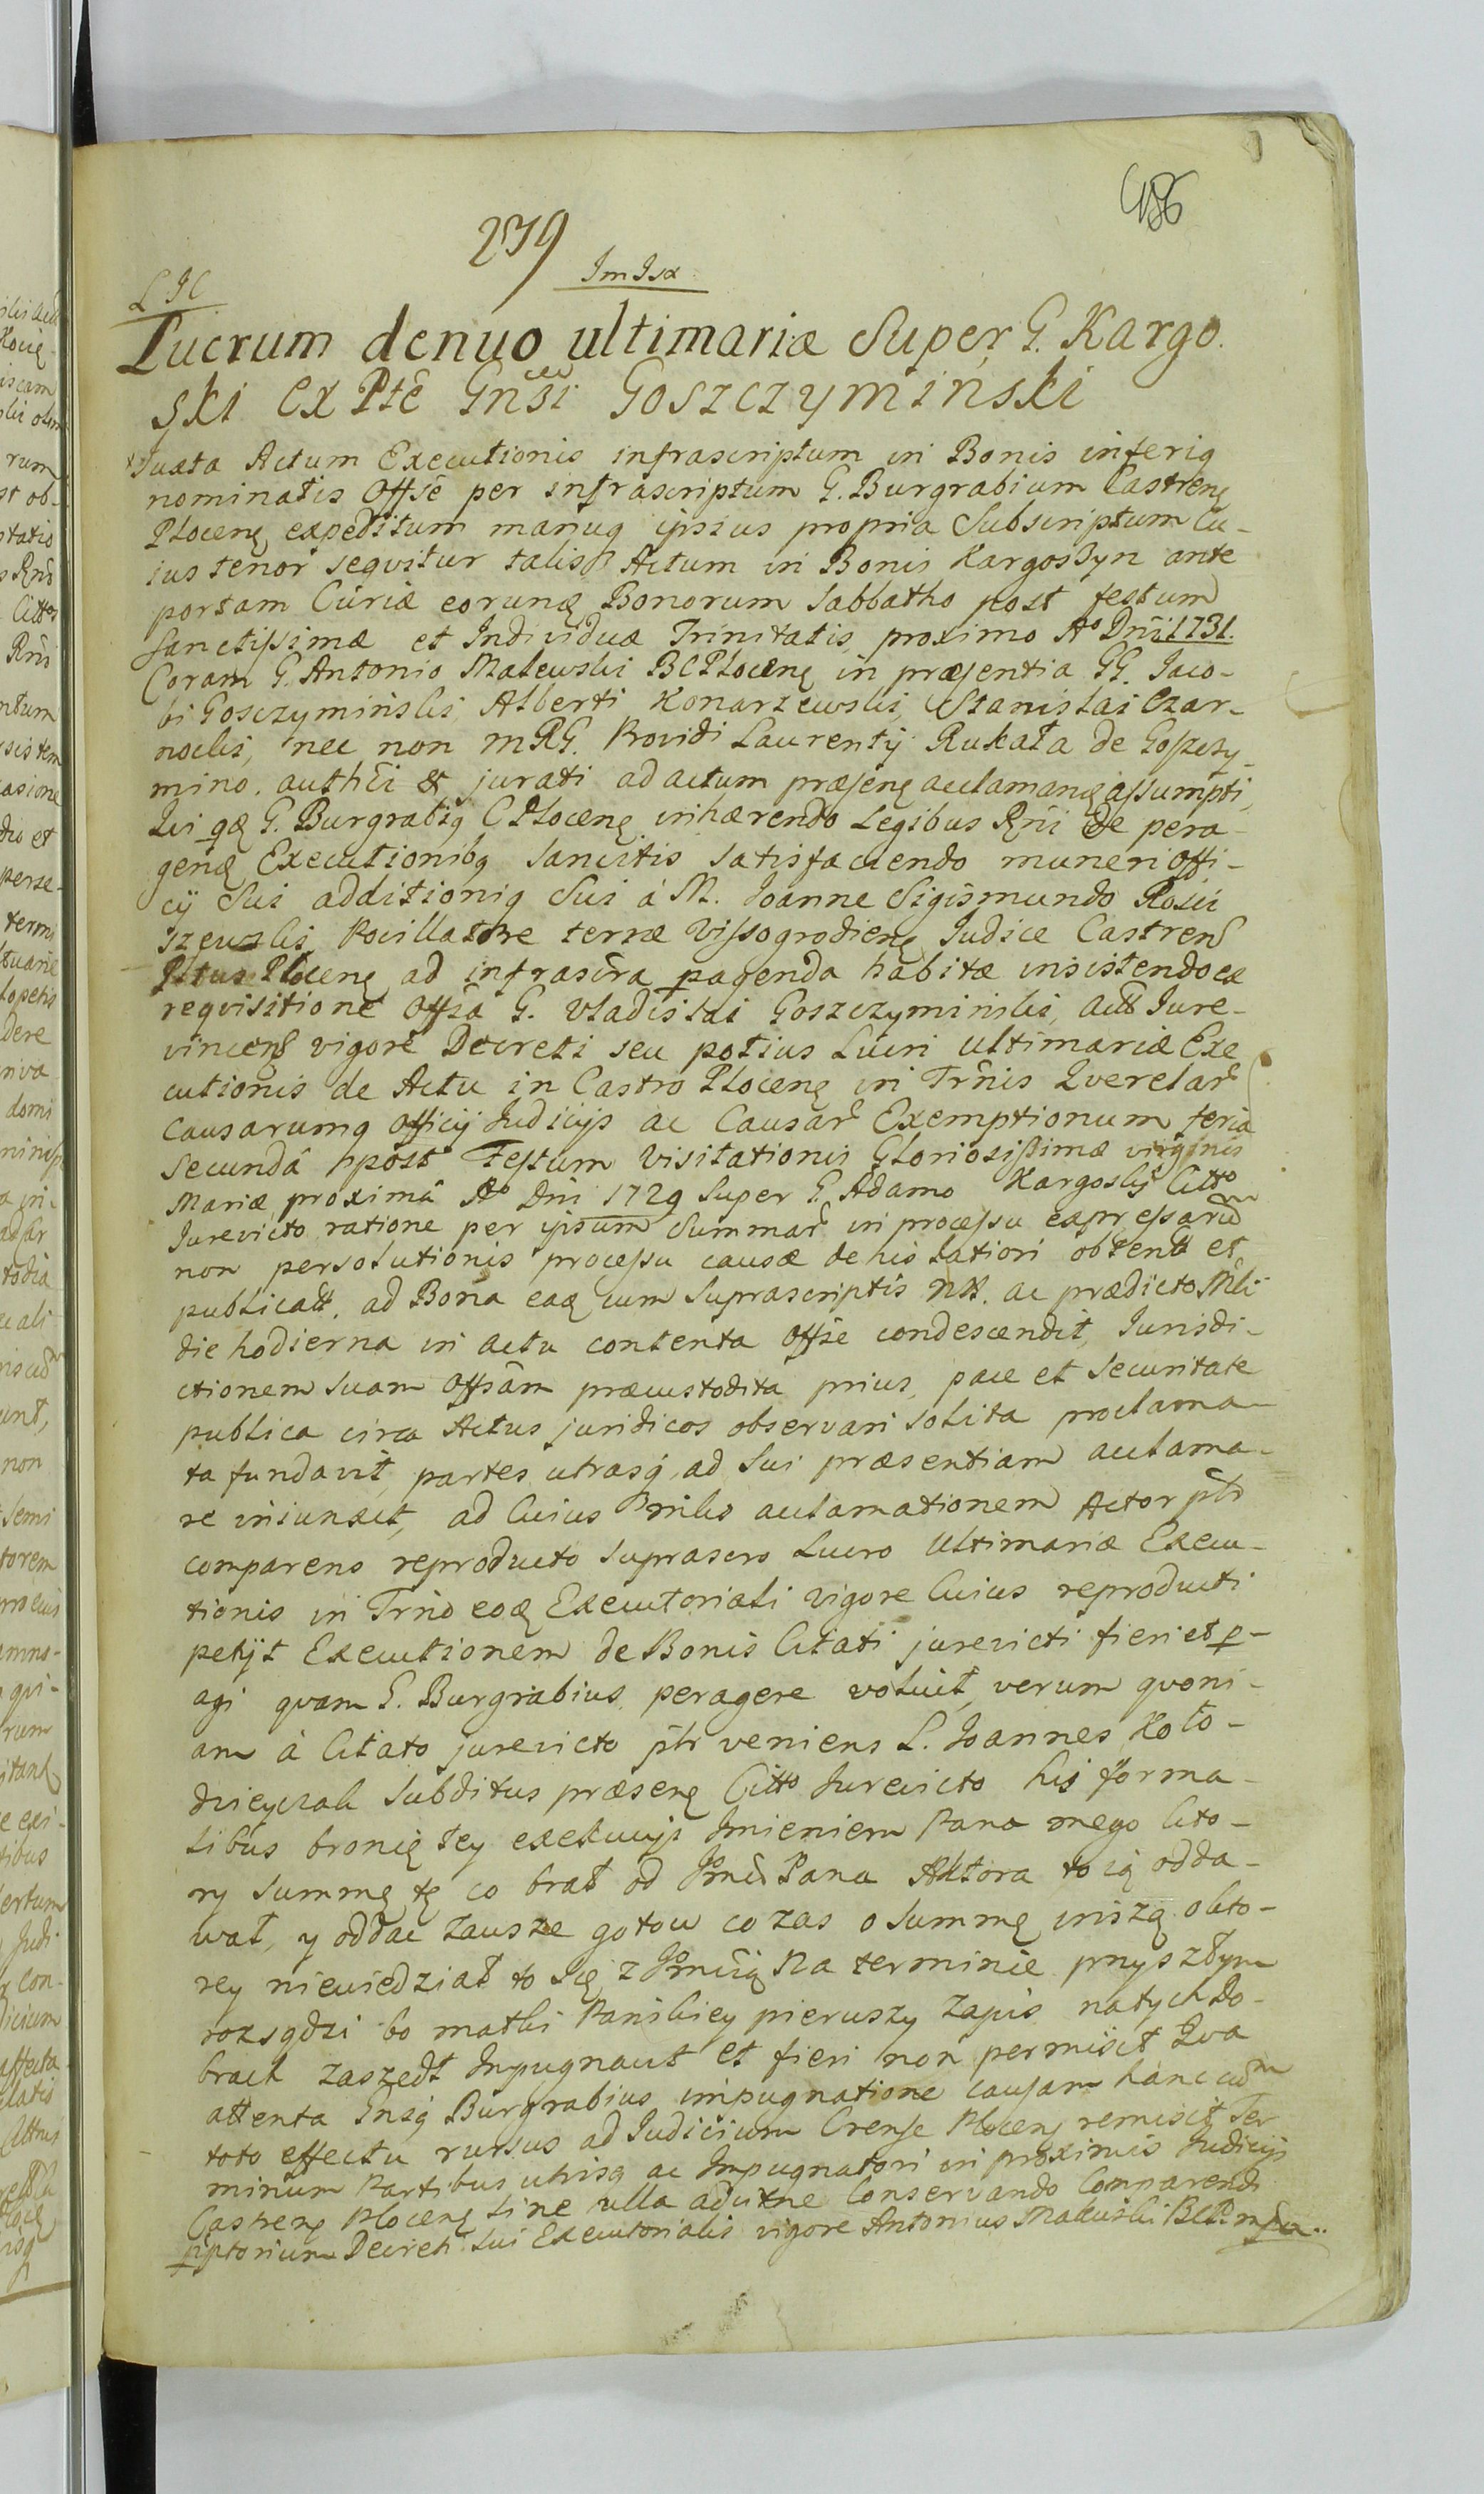 486
279
Im Isa
L I C
Lucrum denuo ultimariæ Super G. Kargo.
ski Ex Pte Gnsi Goszczyminski
Juxta Actum Executionis infrascriptum in Bonis inferiq
nominatis Offsè per infrascriptum G. Burgrabium Castrenę
Plocenę expeditum manuq ipsius propria Subscriptum Cu-
ius tenor sequitur talis Actum in Bonis Kargoszyn ante
portam Curiæ eorund Bonorum Sabbatho post festum
Sanctissimæ et Individuæ Trinitatis proximo Aº Dni 1731.
Coram G. Antonio Makewski BCPlocenę in præsentia GG. Jaco-
bi Gosczyminski, Alberti Konarzewski, Stanislai Czar-
nocki, nec non MRG. Providi Laurentij Rukata de Goszczy-
mino. authci & jurati ad actum præsenę acclamandę assumpti,
Qui G. Burgrabiq CPlocenę inhærendo Legibus Rni de pera-
gend Executionibq Sancitis Satisfaciendo muneri Offi-
cij Sui additioniq Sui à M. Joanne Sigismundo Rosci
szewski Pocillatore terræ Vissogrodienę Judice Castren
Pttus Plocenę ad infrascra pagenda habitæ insistendo ex
requisitione Offsa G. Vladislai Goszczyminski, Actt Jure-
vincent vigore Decreti seu potius Lucri Ultimariæ Exe
cutionis de Actu in Castro Plocenę in Trnis Querelar
Causarumq Officij Judicijs ac Causar Exemptionum feria
Secundâ post Festum Visitationis Gloriosissimæ virginis
Mariæ, proximâ Aº Dni 1729 Super G. Adamo Kargoski Citto
Jurevicto ratione per ipsum Summar in processu expressaru
non persolutionis processu causæ de his latiori obtent et
publicatt. ad Bona ead cum Suprascriptis NN. ac prædicto Mli
die hodierna in actu contenta Offse condescendit, Jurisdi-
ctionem Suam Offsâm præcustodita prius, pace et Securitate
publica circa Actus juridicos observari Solita proclama-
ta fundavit, partes utrasq, ad Sui præsentiam acclama-
re iniunxit, ad Cuius Mnlis acclamationem Actor ptr
comparens reproducto Suprascro Lucro Ultimariæ Execu-
tionis in Trno eod Executoriali vigore Cuius reproducti
petijt Executionem de Bonis Citati jurevicti fieri et p-
agi quam G. Burgrabius peragere voluit, verum quoni-
am à Citato jurevicto ptr veniens L. Joannes Koło-
dzieyczak Subditus præsenę Citto Jurevicto his forma-
libus bronię tey exekucyi Imieniem Pana mego kto-
ry Summę tę co brał od Jmci Pana Aktora to ią odda-
wał, y oddac zausze gotow co zas o Summę inszą okto-
rey niewiedział to się z Jmcią na terminie przyszłym
rozsądzi bo matki Panskiey pierwszy zapis natych do-
brach zaszedł Inpugnavit et fieri non permisit Qua
attenta Insq Burgrabius impugnatione causam hanc cum
toto effectu rursus ad Judicium Crense Plocenę remisit Ter
minum Partibus utrisq ac Impugnatori in proximis Judicijs
Castrenę Plocenę Sine ulla adcitne Conservando Comparendi
pptorium Decreti Sui Executorialis vigore Antonius Makuski BCP. mpa..